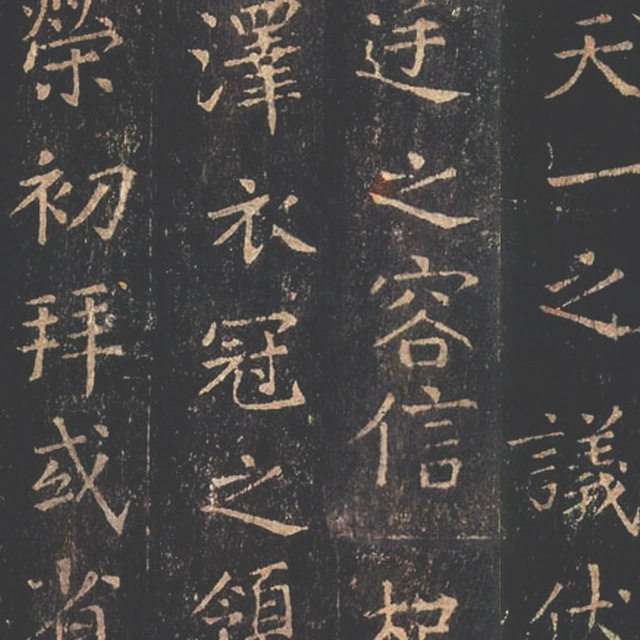 天一之議伏
廷之容信杞
澤衣冠之領
榮初拜或省